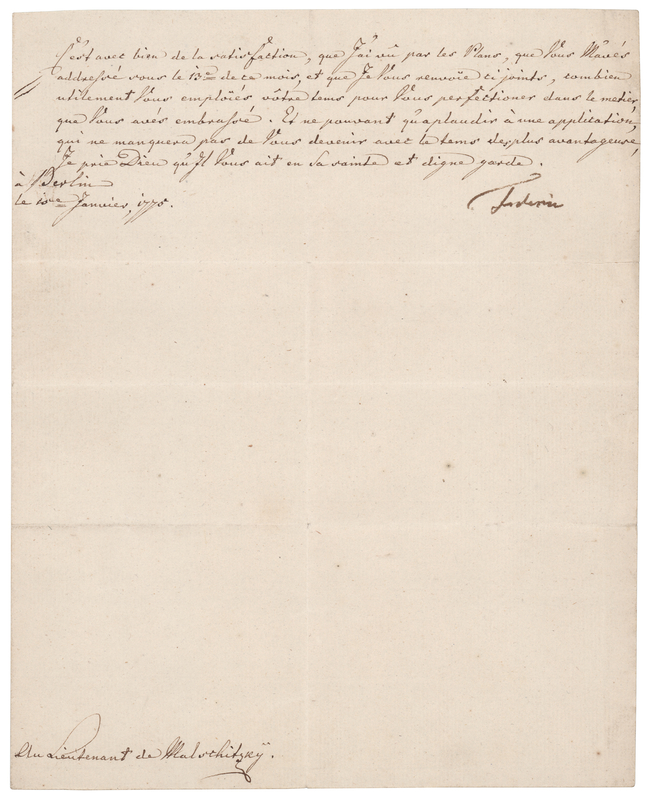 C'est avec bien de la satisfaction, que J'ai vû par les Plans, que Vous M'avés
addressé sous le 13me de ce mois, et que Je Vous renvoïe ci joints, combien
utilement Vous emploïés vôtre tems pour Vous perfectioner dans le metier,
que Vous avés embrassé. Et ne pouvant qu'aplaudir à une application,
qui ne manquera pas de Vous devenir avec le tems des plus avantageuse,
Je prie Dieu qu'Il Vous ait en Sa sainte et digne garde.
à Berlin
le Janvier, 1775.
Federic
Au Lieutenant de Malschitzkÿ.